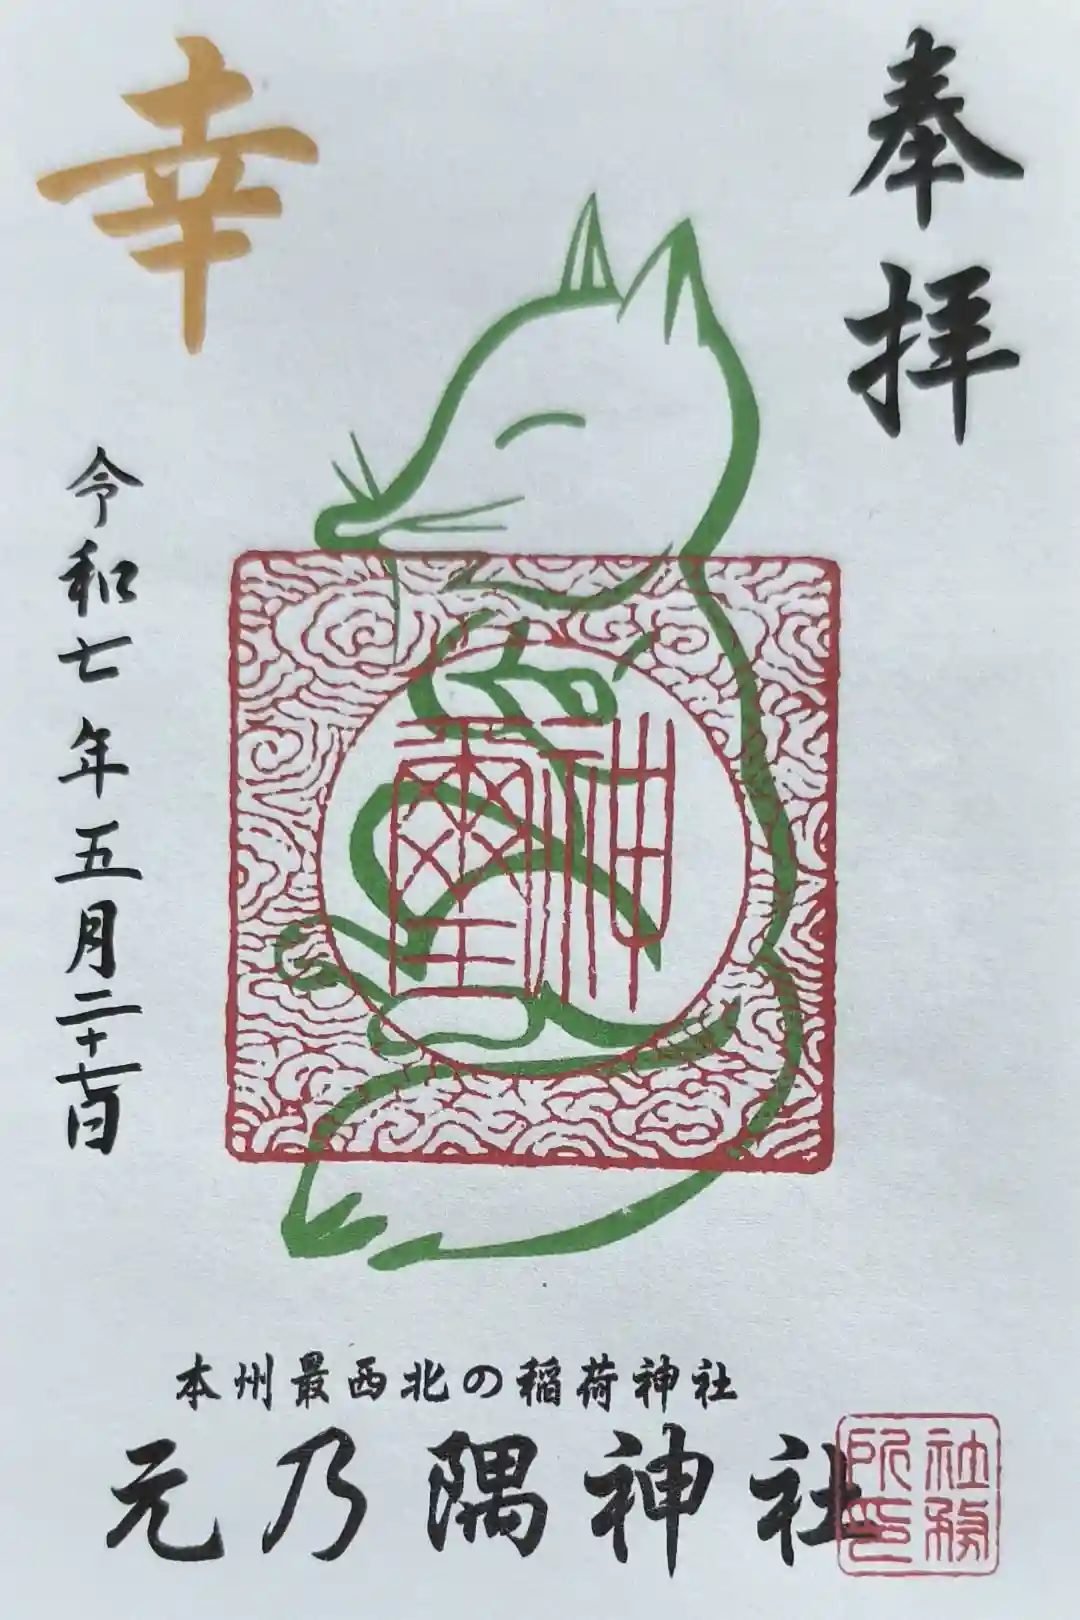 奉拝
幸
令和七年五月二十七日
神璽
本州最西北の稲荷神社
元乃隅神社
社務所印